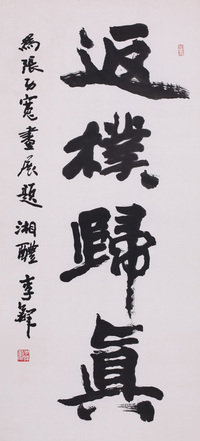 返樸歸真
為張功寬畫展題 湘醴 李鐸